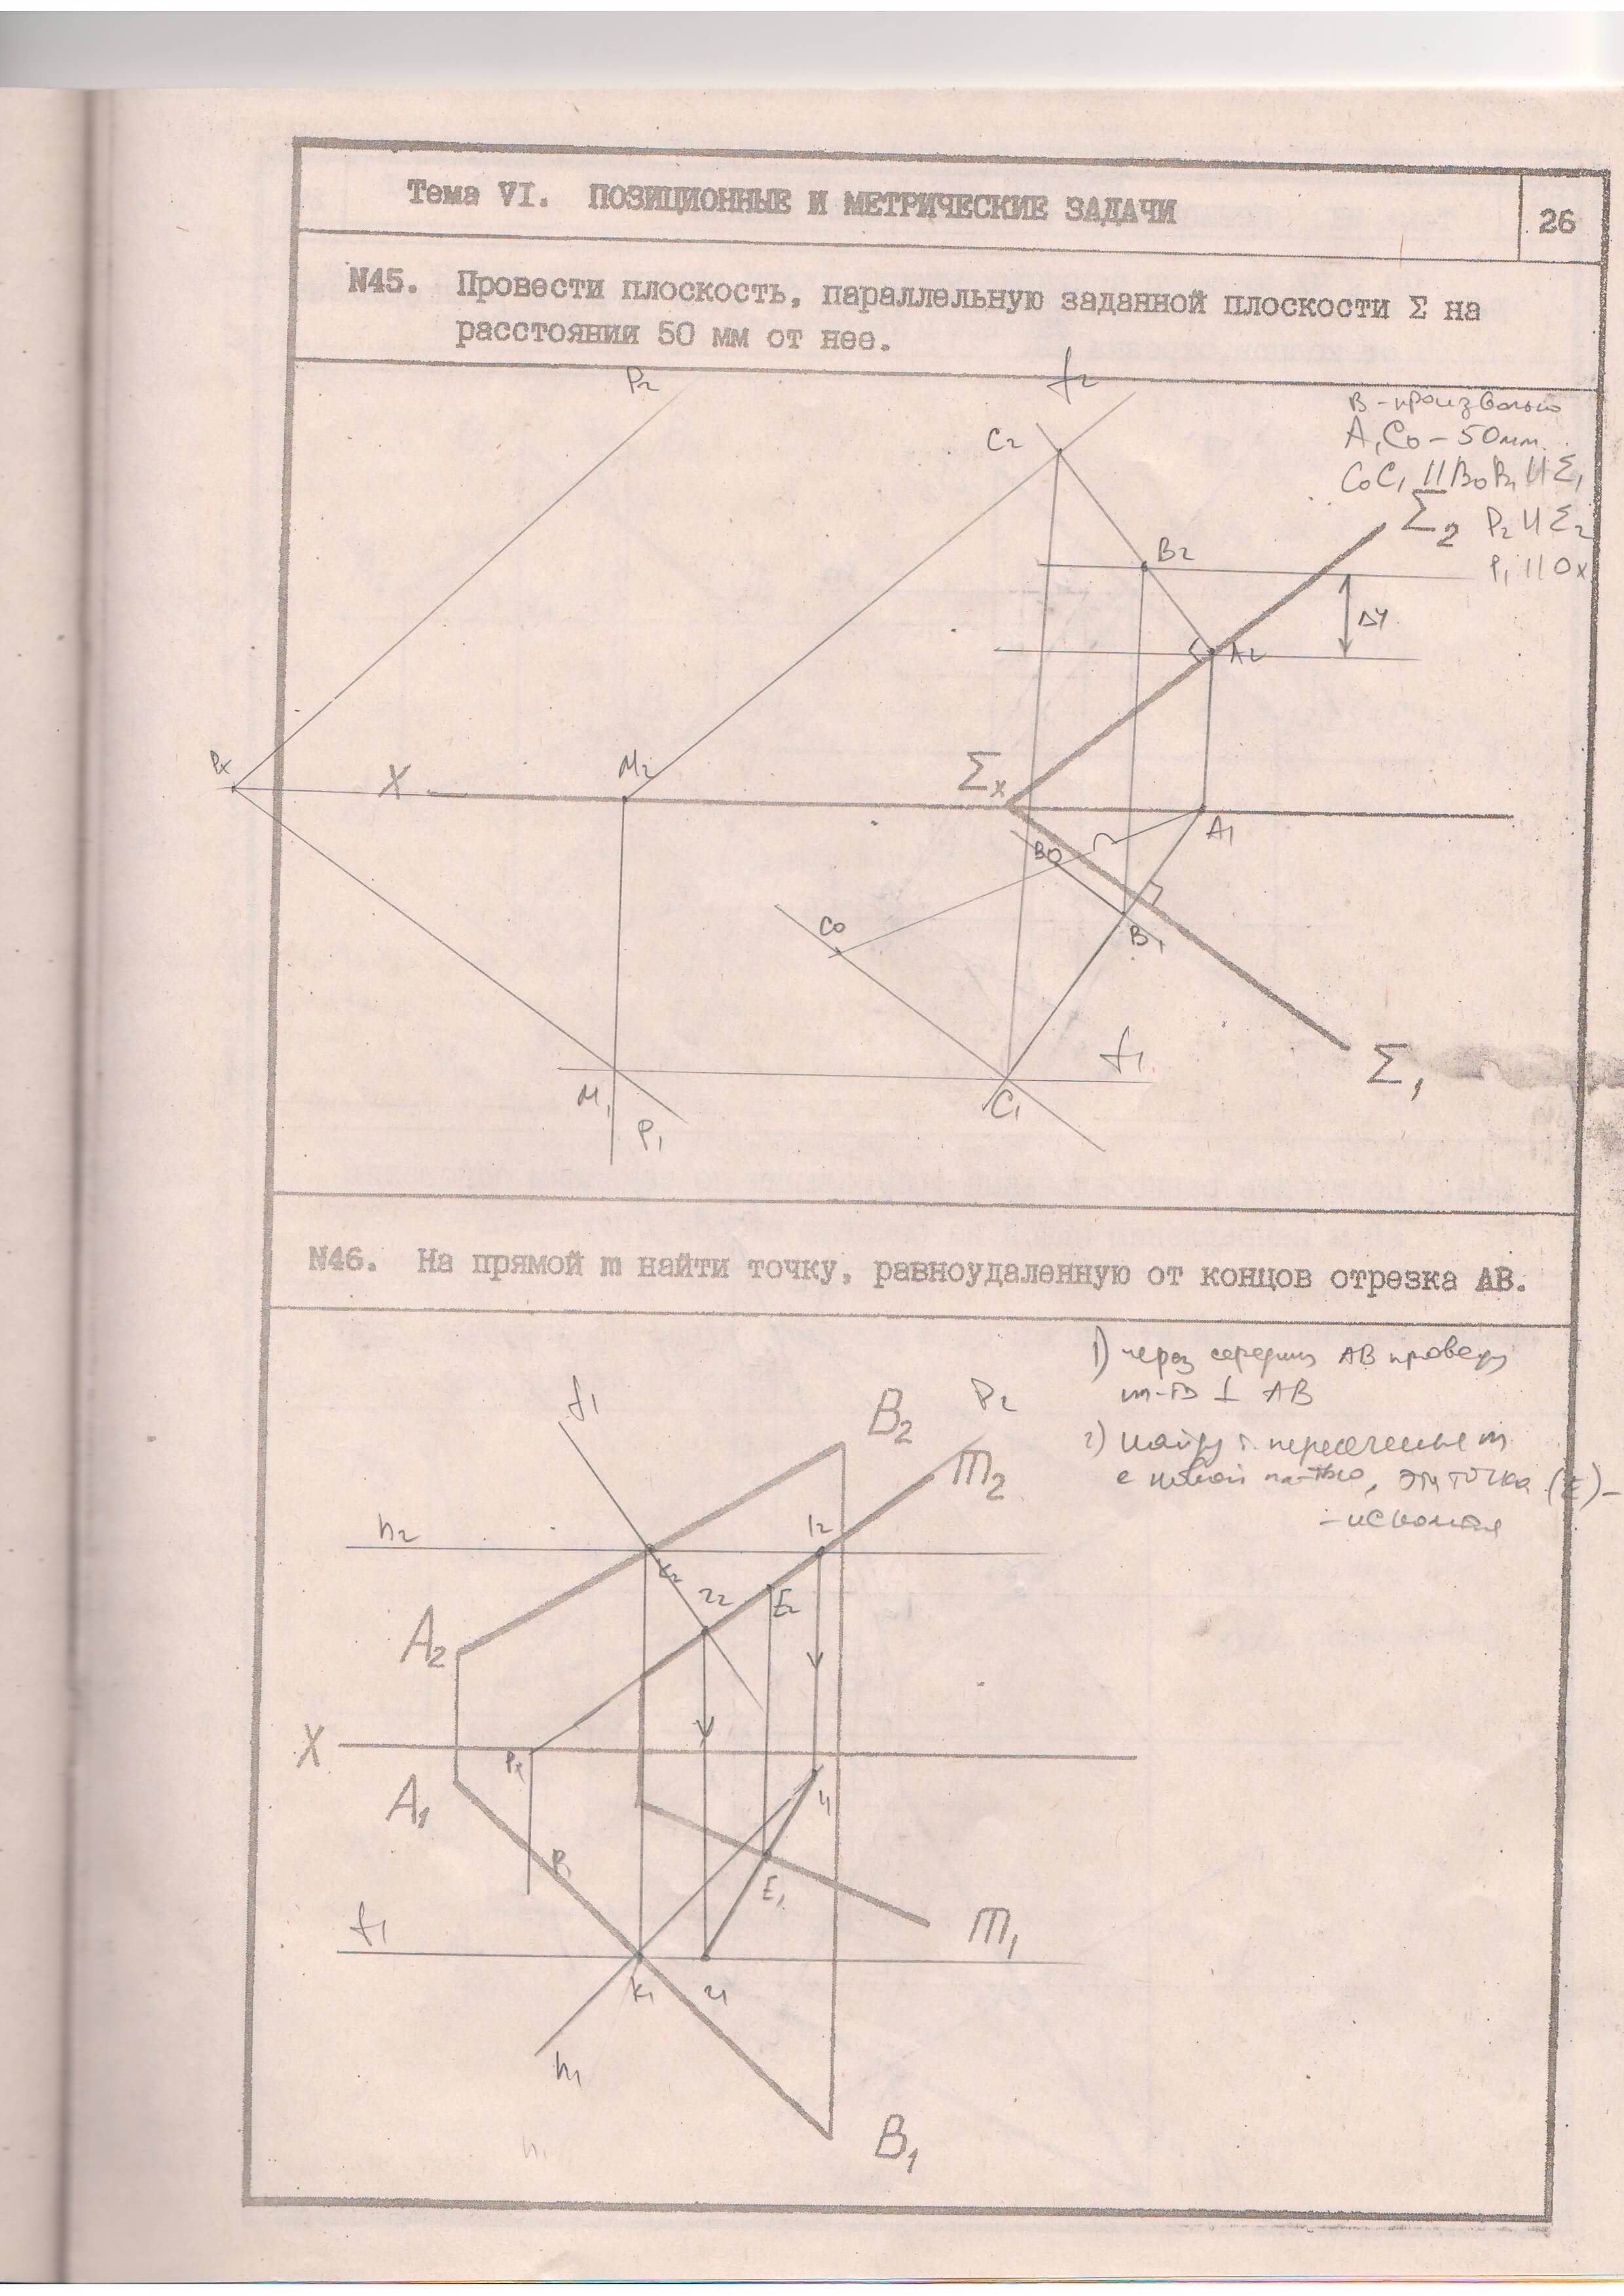 Тема VI. ПОЗИЦИОННЫЕ И МЕТРИЧЕСКИЕ ЗАДАЧИ
26
N45. Провести плоскость, параллельную заданной плоскости Σ на
расстоянии 50 мм от нее.
P₂
f₂
C₂
B - произвольно
A₁C₀ - 50мм.
C₀C₁ // B₀B₁ // Σ₁
Σ₂ P₂ // Σ₂
B₂
P₁ // Ox
ΔY
A₂
Pₓ X M₂ Σₓ
A₁
B₀
C₀
B₁
f₁
Σ₁
M₁
C₁
P₁
N46. На прямой m найти точку, равноудаленную от концов отрезка АВ.
1) через середину AB проведу
пл-ть ⊥ AB
f₁ B₂ P₂
2) найду т. пересечения m
m₂
с новой пл-тью, эта точка (E) -
- искомая
h₂ 1₂
K₂ 2₂ E₂
A₂
X
Pₓ
A₁ 1₁
P₁
E₁
f₁ m₁
K₁ 2₁
h₁
B₁
h₁